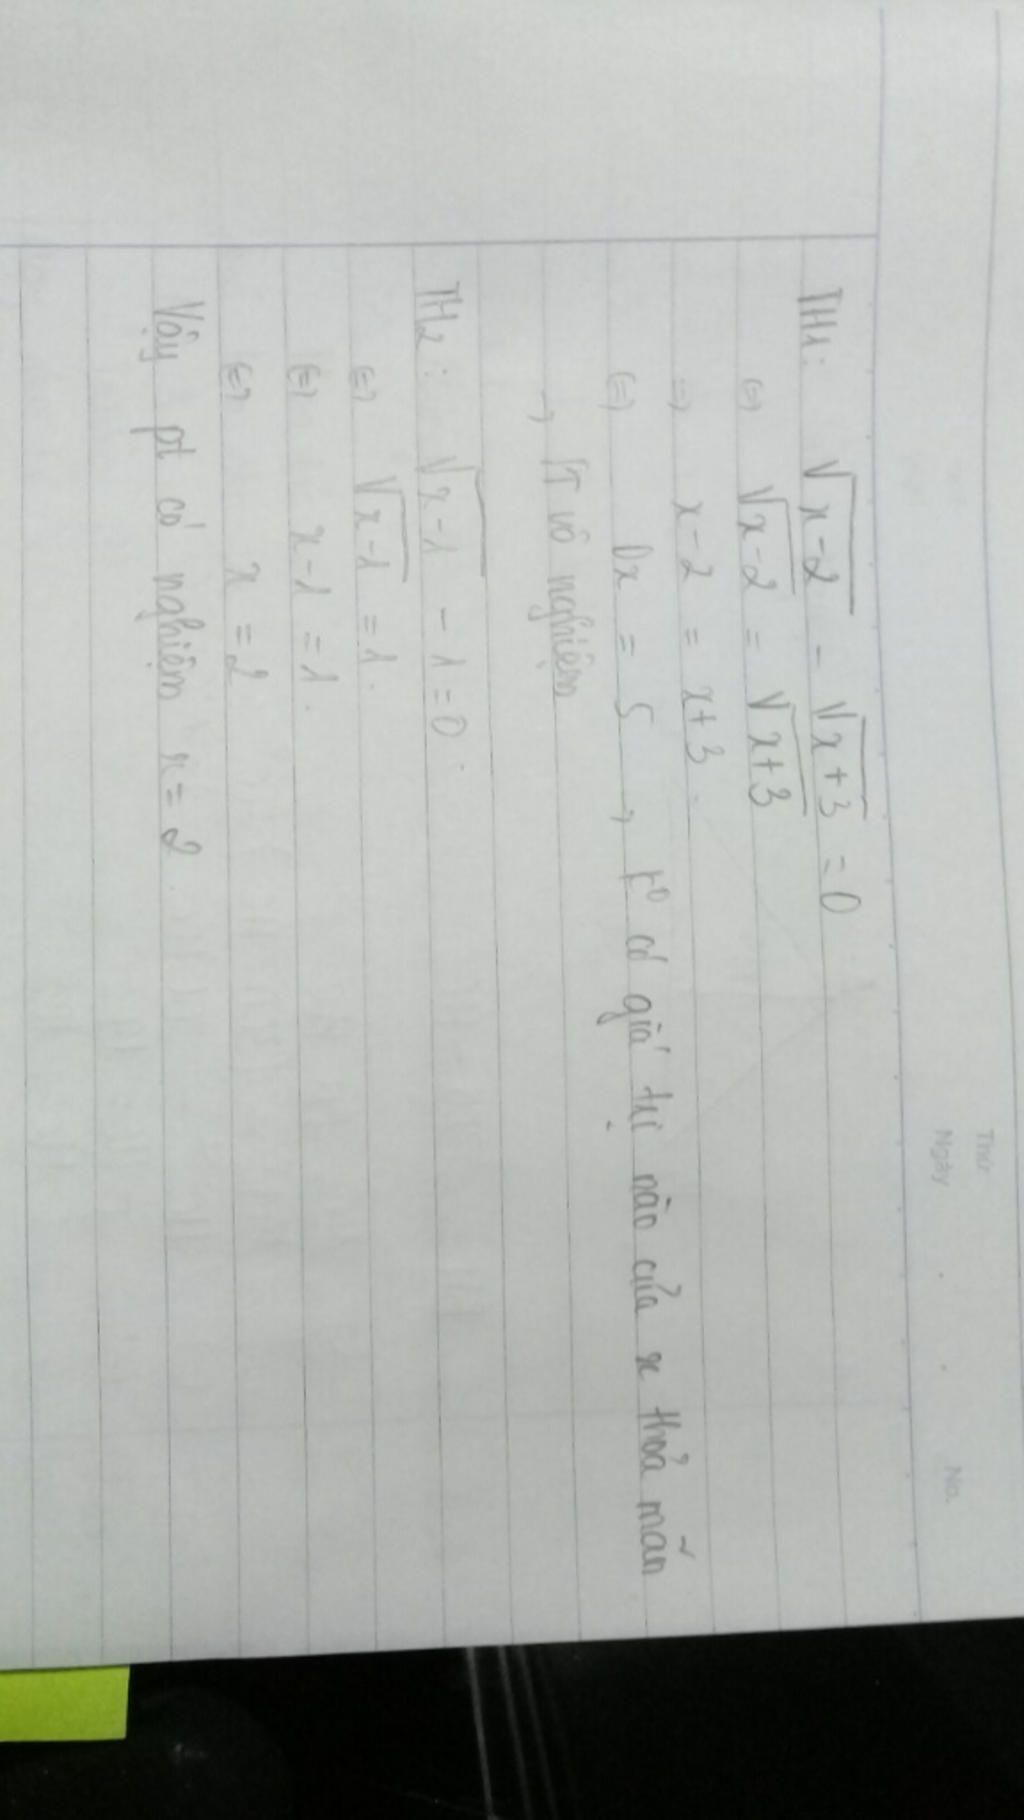 Thứ
Ngày
No.
TH1: √x-2 - √x+3 = 0
⇔ √x-2 = √x+3
⇒ x-2 = x+3
⇔ 0x = 5 → k⁰ có giá trị nào của x thoả mãn
→ PT vô nghiệm
TH2: √x-1 - 1 = 0.
⇔ √x-1 = 1.
⇔ x-1 = 1.
⇔ x = 2
Vậy pt có nghiệm x = 2.